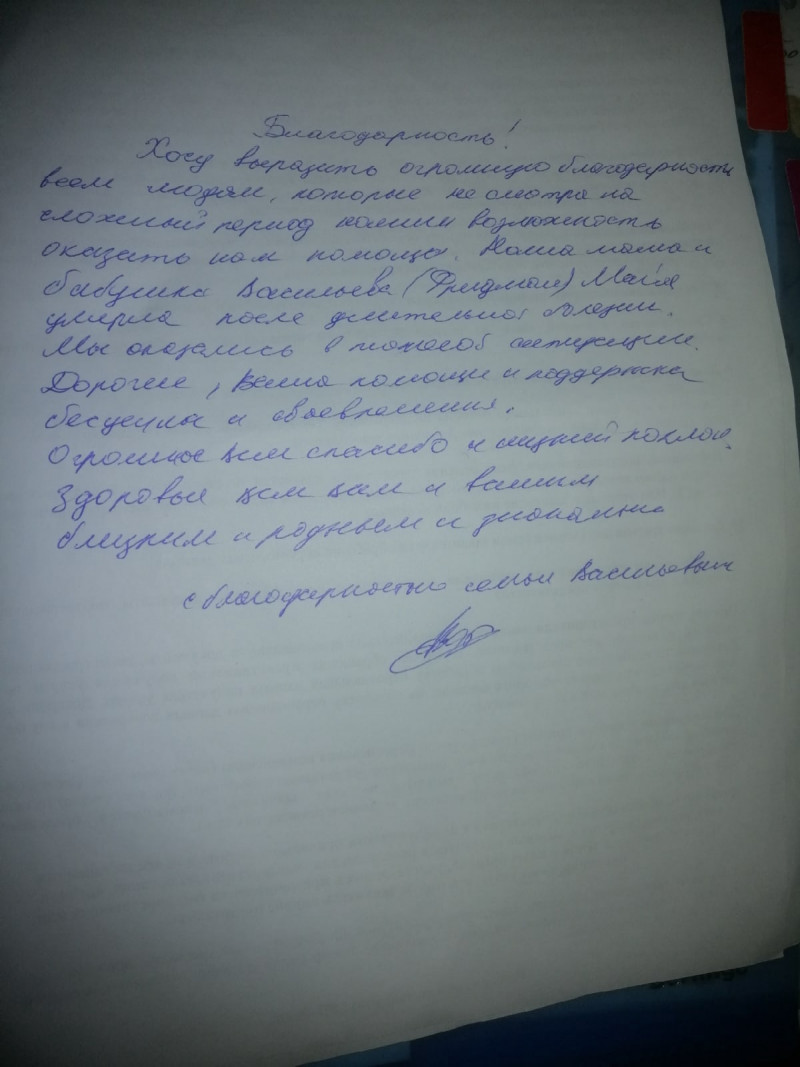 Благодарность!
Хочу выразить огромную благодарность
всем людям, которые не смотря на
сложный период нашли возможность
оказать нам помощь. Наша мама и
бабушка Васильева (Фридман) Майя
умерла после длительной болезни.
Мы оказались в тяжелой ситуации.
Дорогие, Ваша помощь и поддержка
бесценны и своевременна.
Огромное Вам спасибо и низкий поклон.
Здоровья всем вам и вашим
близким и родным и
с благодарностью семья Васильевых